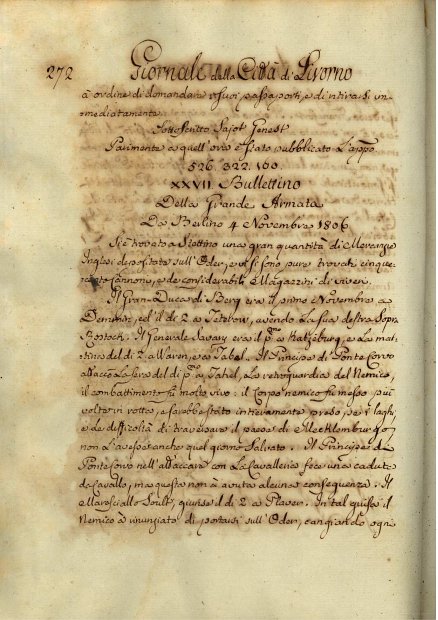 272 Giornale della Città di Livorno
à ordine di domandare i suoi passaporti, e di ritirarsi im-
mediatamente.
Sottoscritto Sajot Genest
Parimente a quell'ora è stato pubblicato l'appo
526. 322. 100.
XXVII. Bullettino
Della Grande Armata
Da Berlino 4 Novembre 1806
Si è trovato a Stettino una gran quantità di Meranzie
Inglesi depositate sull'Oder, e vi si sono pure trovati cinque
cento cannoni, e de considerabili Magazzini di viveri.
Il Gran-Duca di Berg era il primo Novembre a
Demmin, ed il dì 2 a Teterow, avendo la sua destra sopra
Rostock. Il Generale Savary era il p.mo a Kratzeburg, e la mat-
tina del dì 2 a Waren, e a Jabel. Il Principe di Ponte Corvo
attaccò la sera del dì p.mo a Jabel, la retroguardia del Nemico,
il combattimento fu molto vivo: il Corpo nemico fu messo più
volte in rotta, e sarebbe stato intieramente preso, se i laghi,
e la difficoltà di traversare il paese di Mecklemburgo
non l'avesse anche quel giorno salvato. Il Principe di
Ponte Corvo nell'attaccare con la Cavalleria fece una caduta
da cavallo, ma questa non à avuta alcuna conseguenza. Il
Maresciallo Soult, giunse il dì 2 a Plauer. In tal guisa il
Nemico à rinunziato di portarsi sull'Oder, cangiando ogni